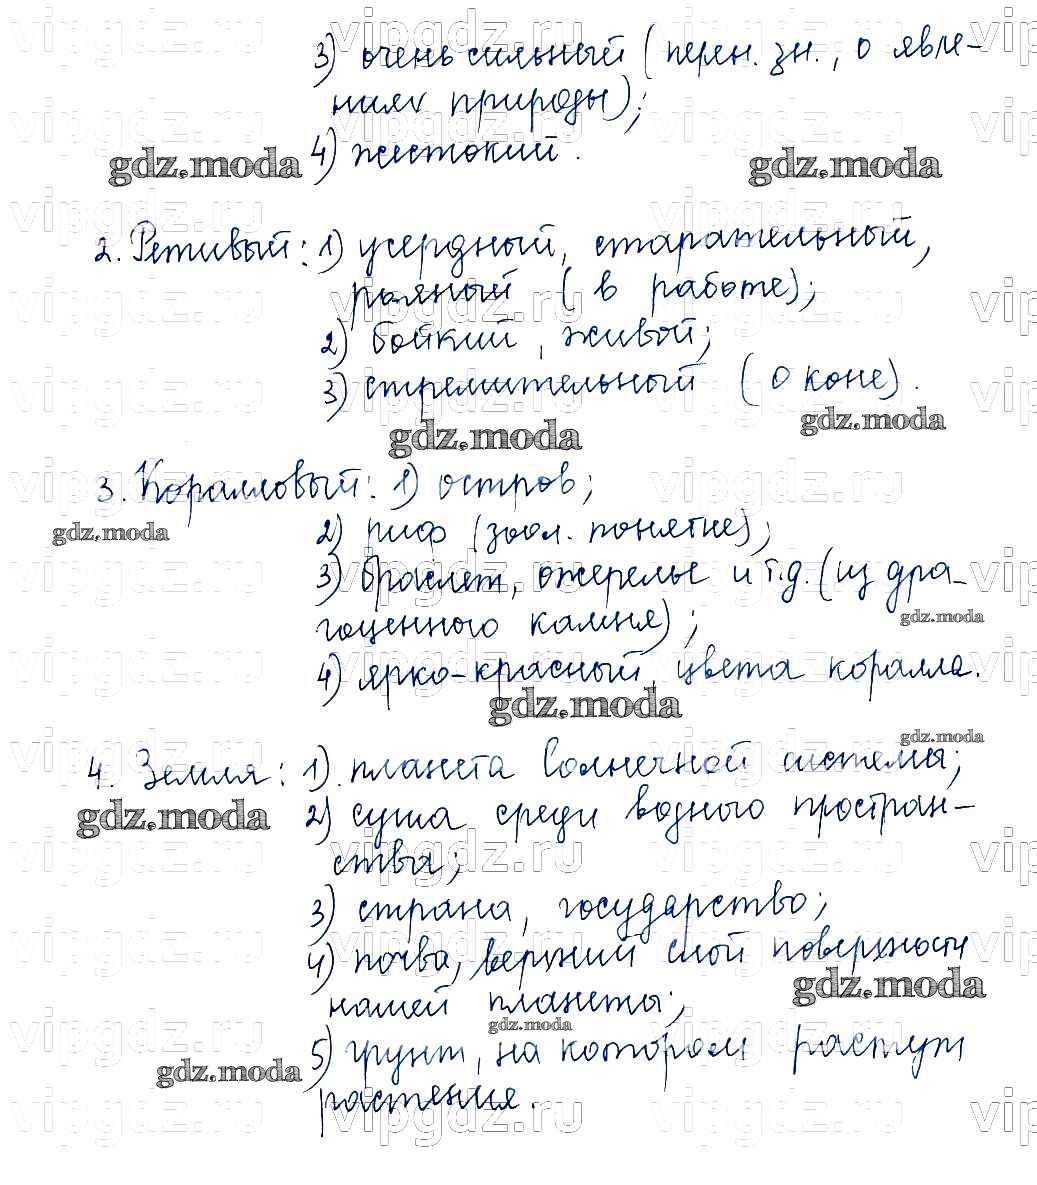 3) очень сильный (перен. зн., о явле-
ниях природы);
4) жестокий.
2. Ретивый: 1) усердный, старательный,
рьяный (в работе);
2) бойкий, живой;
3) стремительный (о коне).
3. Коралловый: 1) остров;
2) риф (зоол. понятие);
3) браслет, ожерелье и т.д. (из дра-
гоценного камня);
4) ярко-красный, цвета коралла.
4. Земля: 1) планета Солнечной системы;
2) суша среди водного простран-
ства;
3) страна, государство;
4) почва, верхний слой поверхности
нашей планеты;
5) грунт, на котором растут
растения.